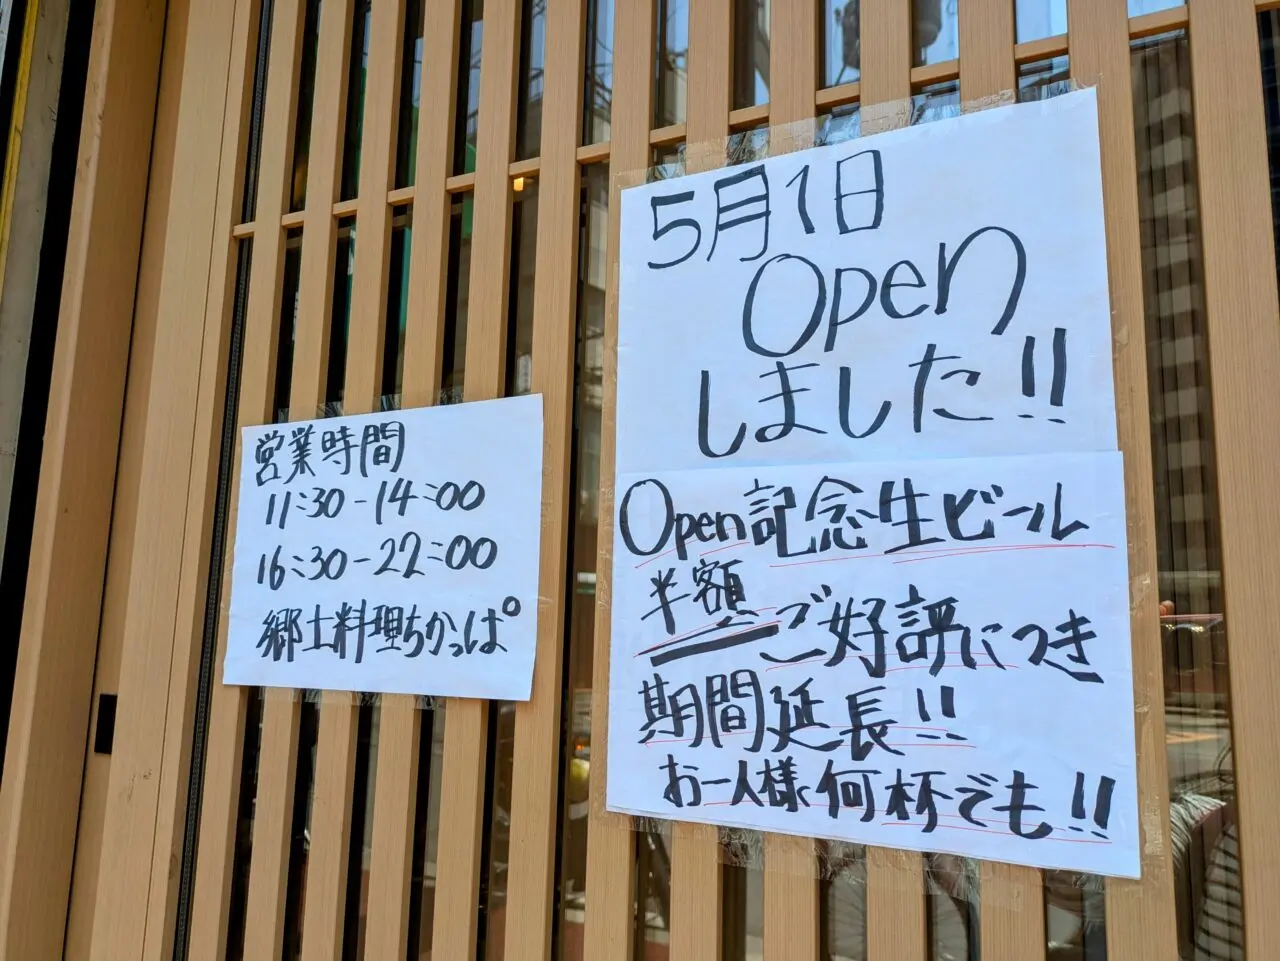 営業時間
11:30-14:00
16:30-22:00
郷土料理ちかっぱ
5月1日
Open
しました!!
Open記念生ビール
半額 ご好評につき
期間延長!!
お一人様何杯でも!!